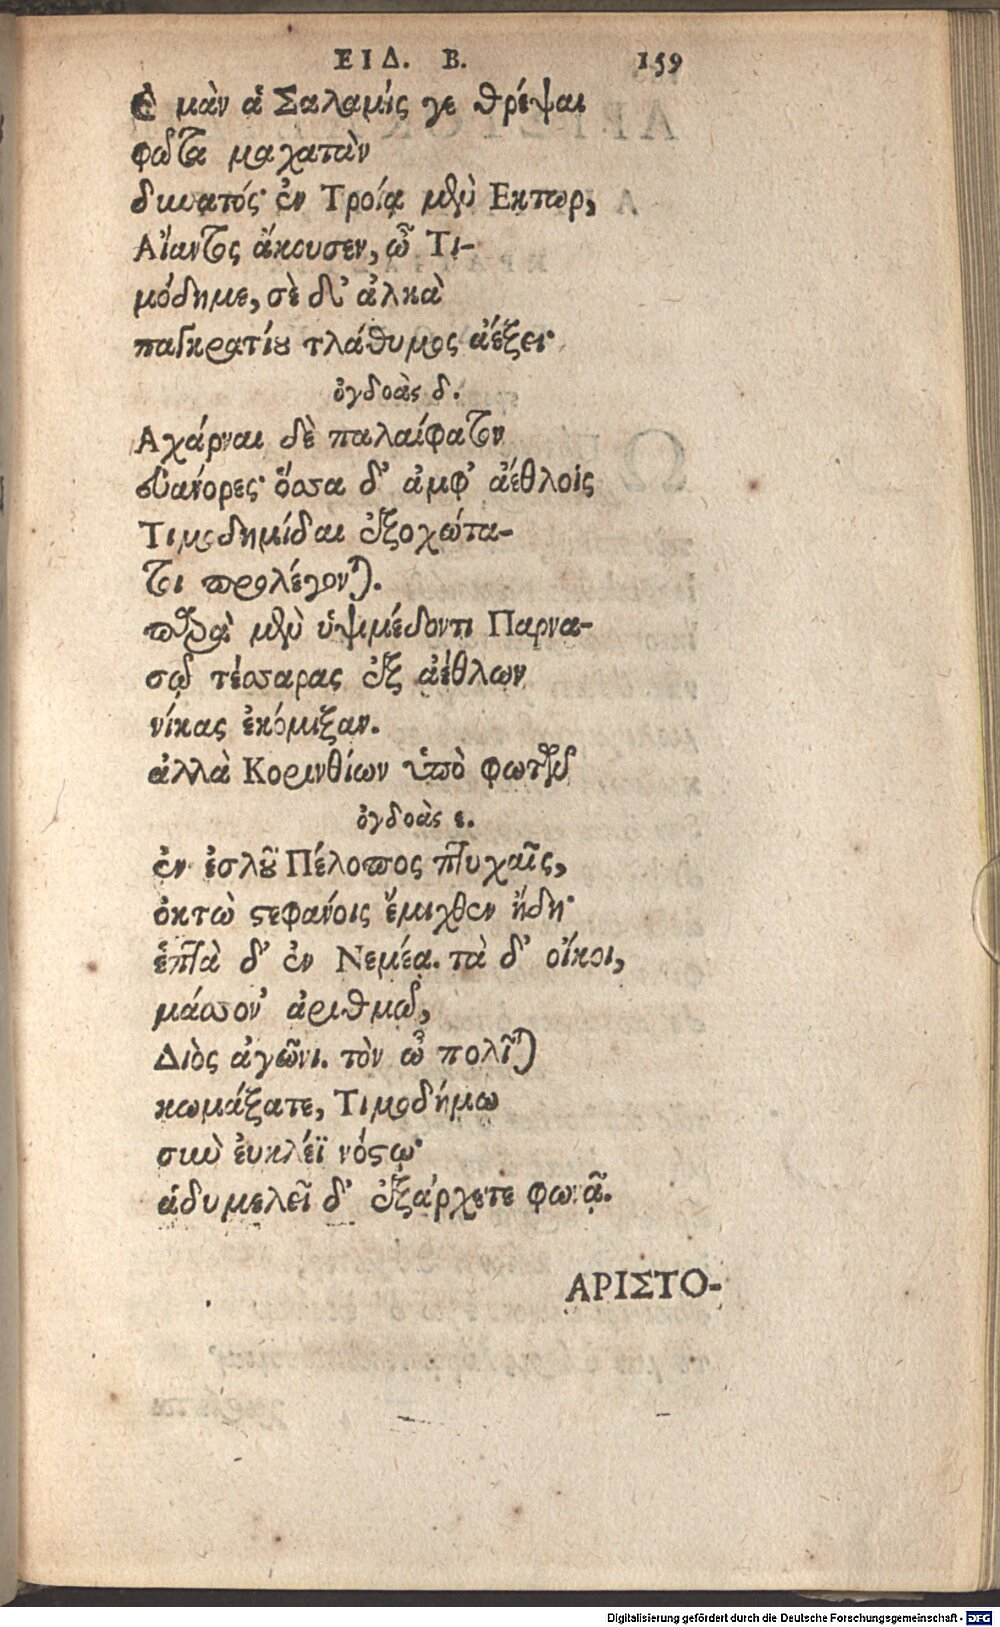 ΕΙΔ. Β. 159
ὲ μὰν ἁ Σαλαμίς γε θρέψαι
φῶτα μαχατὰν
δυνατός· ἐν Τροίᾳ μὲν Εκτωρ,
Αἴαντος ἄκουσεν, ὦ Τι-
μόδημε, σὲ δ' ἀλκὰ
παγκρατίου τλάθυμος ἀέξει·
ὀγδοὰς δ.
Αχάρναι δὲ παλαίφατον
εὐάνορες· ὅσσα δ' ἀμφ' ἀέθλοις
Τιμοδημίδαι ἐξοχώτα-
τοι προλέγονται.
παρὰ μὲν ὑψιμέδοντι Παρνα-
σῷ τέσσαρας ἐξ ἀέθλων
νίκας ἐκόμιξαν.
ἀλλὰ Κορινθίων ὑπὸ φωτῶν
ὀγδοὰς ε.
ἐν ἐσλοῦ Πέλοπος πτυχαῖς,
ὀκτὼ στεφάνοις ἔμιχθεν ἤδη·
ἑπτὰ δ' ἐν Νεμέᾳ. τὰ δ' οἴκοι,
μάσσον' ἀριθμῶ,
Διὸς ἀγῶνι. τὸν ὦ πολῖται
κωμάξατε, Τιμοδήμω
σὺν εὐκλέϊ νόστῳ·
ἁδυμελεῖ δ' ἐξάρχετε φωνᾷ.
ΑΡΙΣΤΟ-
Digitalisierung gefördert durch die Deutsche Forschungsgemeinschaft - DFG